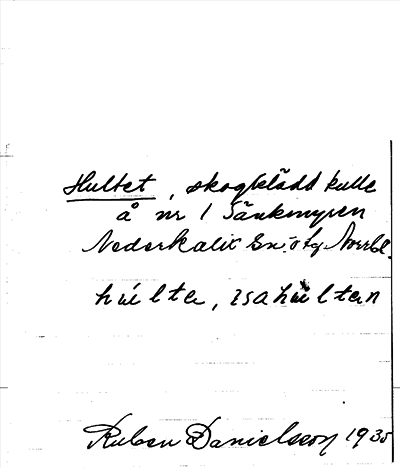 Hultet, skogklädd kulle
å nr 1 Sänkmyren
Nederkalix Sn. Norrb.
húlte, isahúlten
Ruben Danielsson 1935